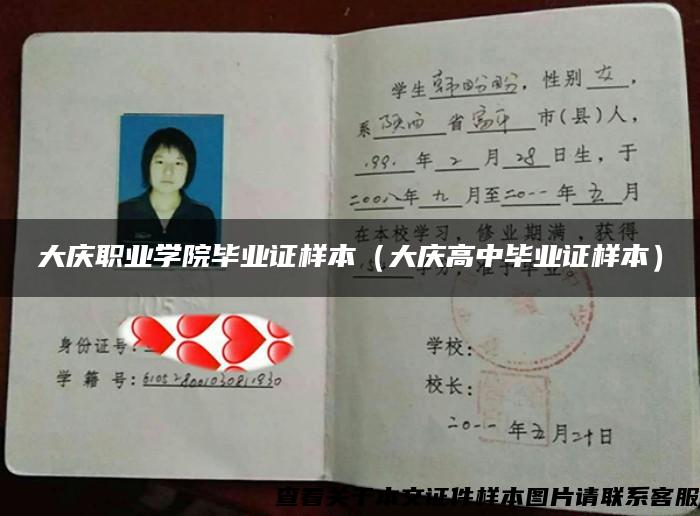 学生韩盼盼，性别女，
系陕西省富平市(县)人，
1991年2月28日生，于
二00八年九月至二0一一年五月
在本校学习，修业期满，获得
学分，准予毕业
大庆职业学院毕业证样本（大庆高中毕业证样本）
身份证号:
学籍号:
学校:
校长:
二0一一年五月二十日
查看关于本文证件样本图片请联系客服